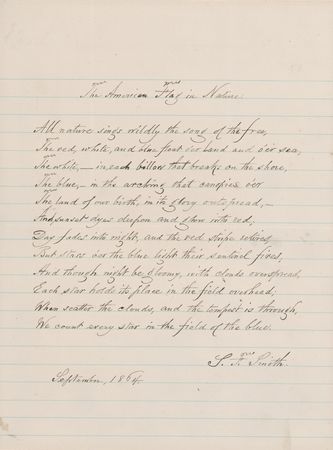 The American Flag in Nature.
All nature sings wildly the song of the free,
The red, white, and blue float o'er land and o'er sea,
The white, – in each billow that breaks on the shore,
The blue, – in the arching that canopies o'er
The land of our birth, in its glory outspread, –
And sunset dyes deepen and glow with red,
Day fades into night, and the red stripe retires,
But stars o'er the blue light their sentinel fires,
And though night be gloomy, with clouds overspread,
Each star holds its place in the field overhead;
When scatter the clouds, and the tempest is through,
We count every star in the field of the blue.
Smith.
September, 1864.